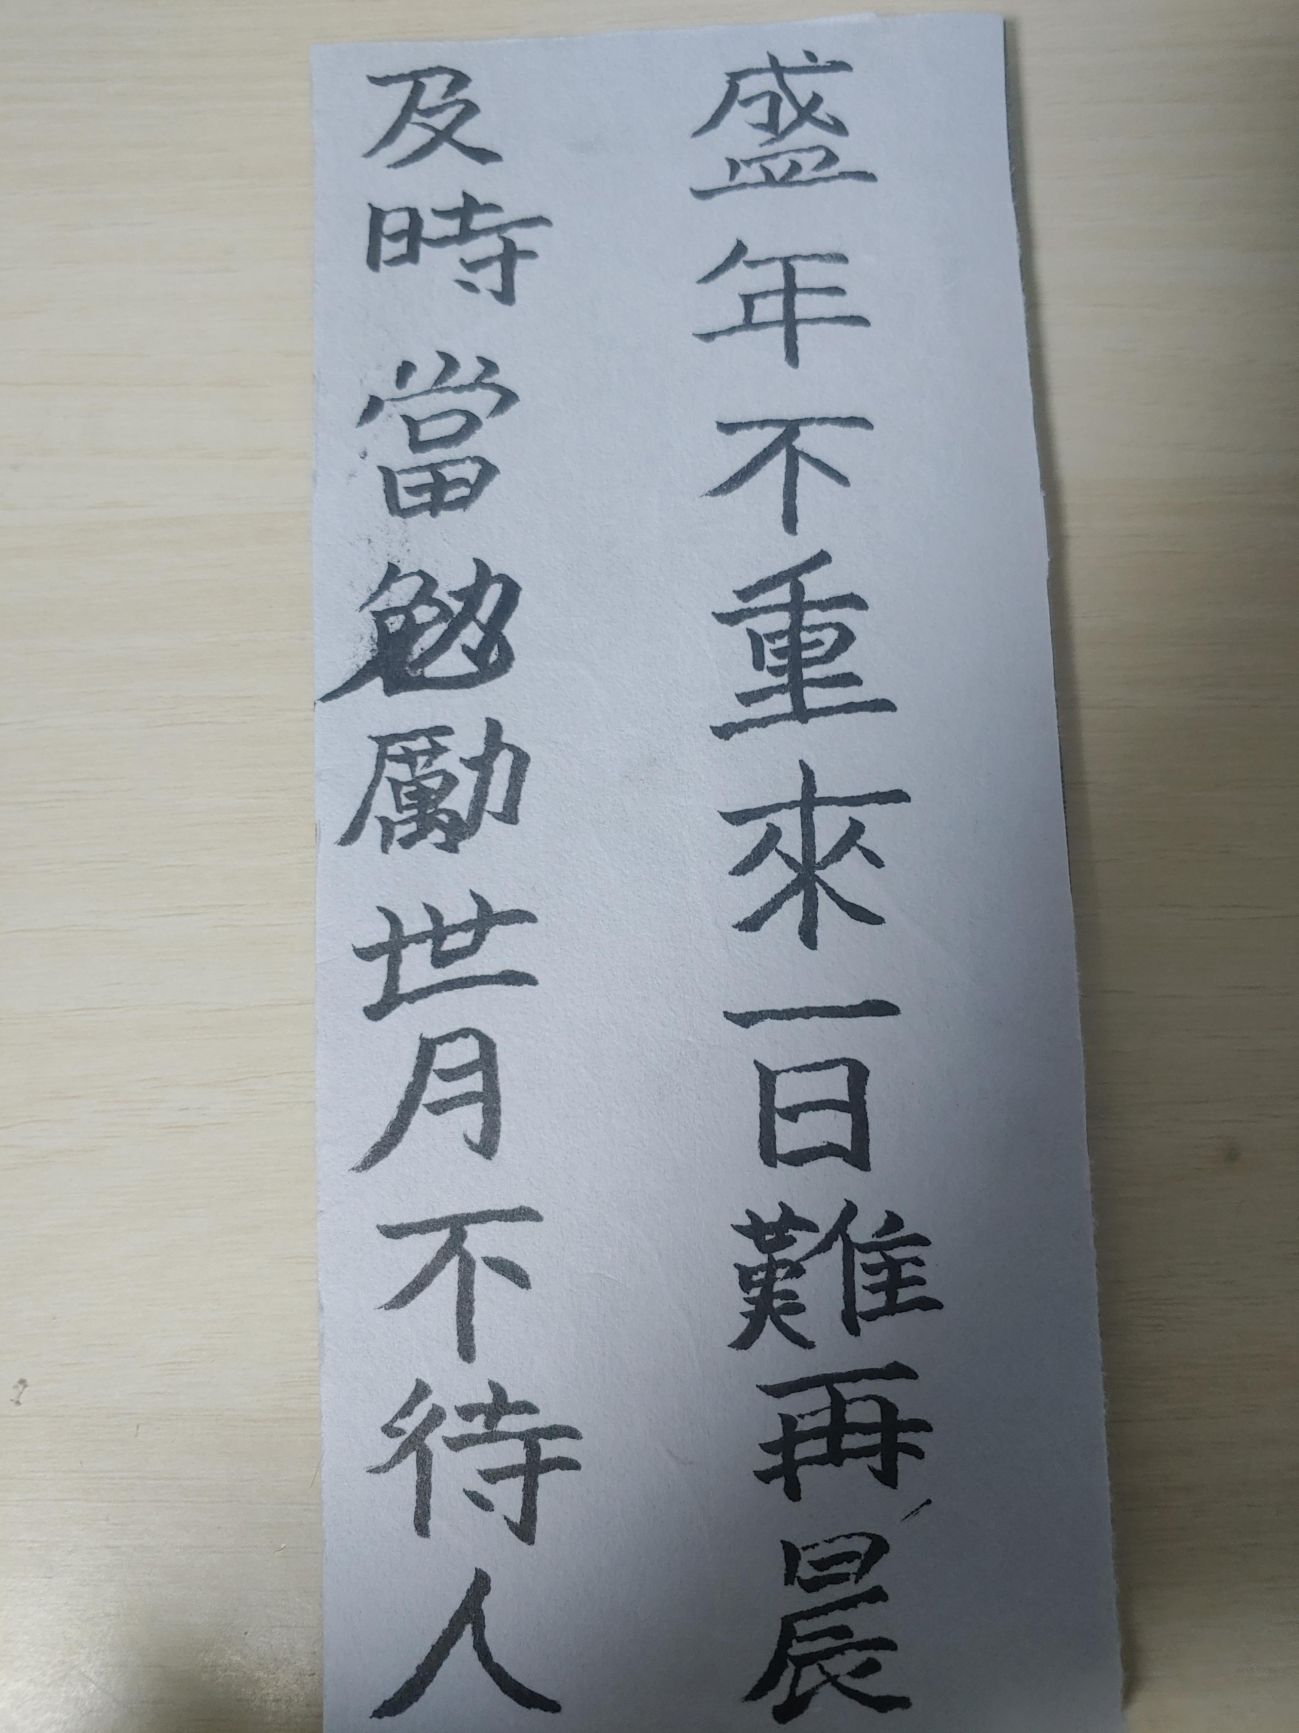 盛年不重來一日難再晨
及時當勉勵世月不待人